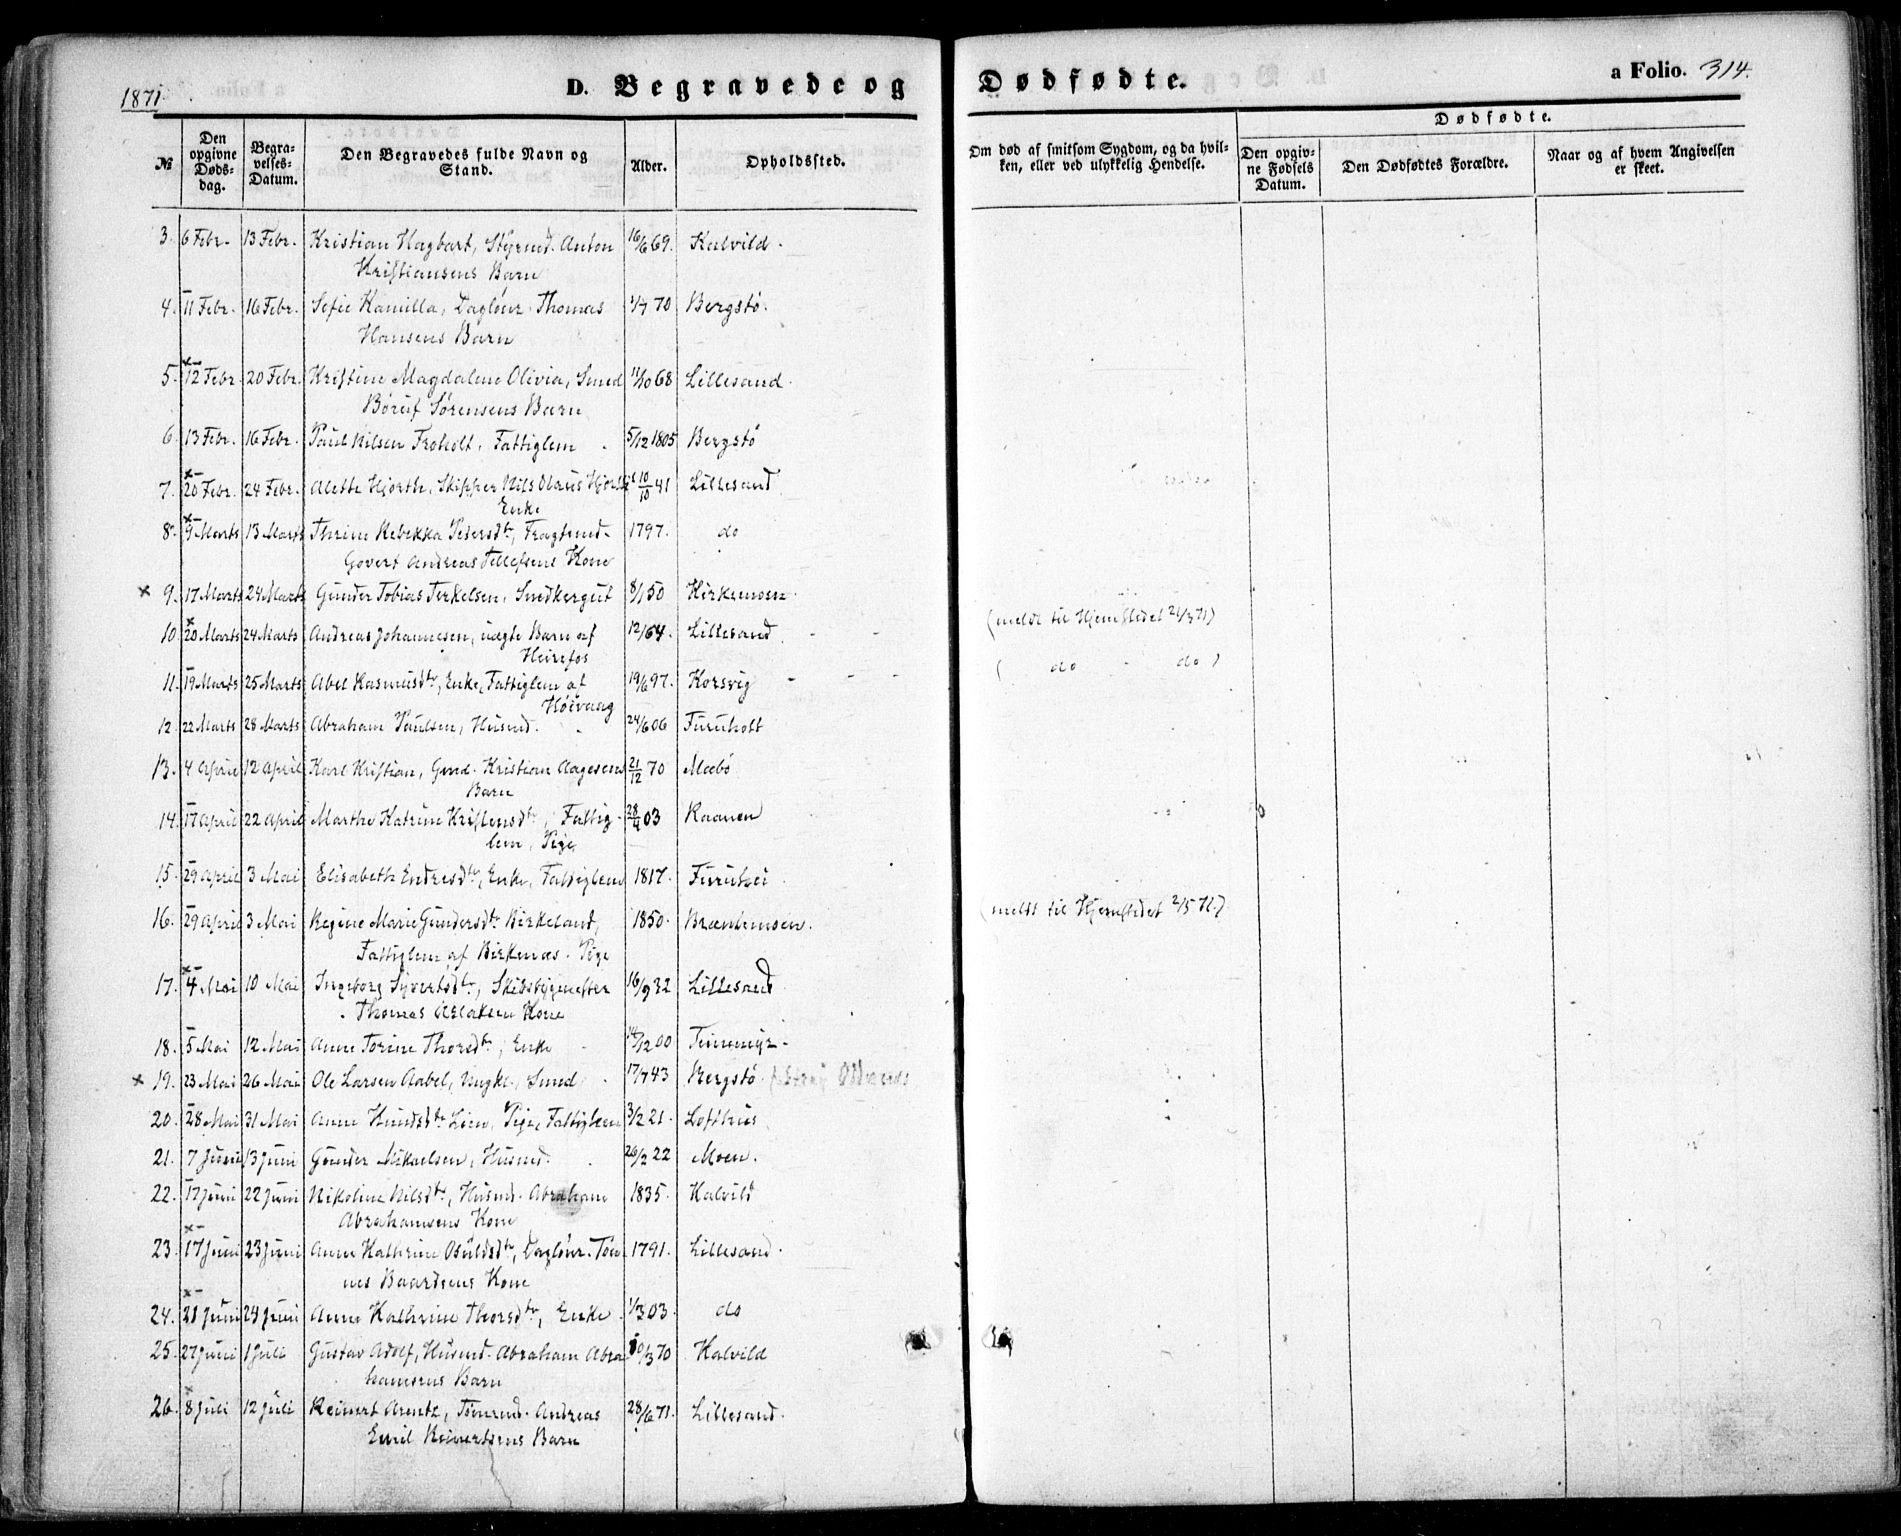 1871.
D. Begravede og Dødfødte.
a Folio. 314.
№
Den opgivne Dødsdag.
Begravelses-Datum.
Den Begravedes fulde Navn og Stand.
Alder.
Opholdssted.
Om død af smitsom Sygdom, og da hvilken, eller ved ulykkelig Hendelse.
Dødfødte.
Den opgivne Fødsels Datum.
Den Dødfødtes Forældre.
Naar og af hvem Angivelsen er skeet.
3. 6 Febr. 13 Febr. Kristian Hagbart, Styrmd. Anton 16/6 69. Kalvild.
Kristiansens Barn
4. 11 Febr. 16 Febr. Sofie Kamilla, Dagløn. Thomas 1/7 70 Bergstø.
Hansens Barn
5. 12 Febr. 20 Febr. Kristine Magdalene Olivia, Smed 11/10 68 Lillesand.
Børuf Sørensens Barn
6. 13 Febr. 16 Febr. Paul Nilsen Froholt, Fattiglem 5/12 1805 Bergstø
7. 20 Febr. 24 Febr. Alette Hjorth, Skipper Nils Olaus Hjorths 10/10 41 Lillesand
Enke
8. 9 Marts 13 Marts Thrine Rebekka Pedersdtr, Fragtemd. 1797. do
Govert Andreas Tellefsens Kone
× 9. 17 Marts 24 Marts Gunder Tobias Terkelsen, Snedkergut 8/1 50 Kirkemoen
(meldt til Hjemstedet 21/3 71)
10. 20 Marts 24 Marts Andreas Johannesen, uægte Barn af 12/64. Lillesand
Heirefos
( do - do )
11. 19 Marts 25 Marts Abel Rasmusdtr, Enke, Fattiglem af 19/6 97. Korsvig
Høivaag
12. 22 Marts 28 Marts Abraham Paulsen, Husmd. 24/6 06 Furuholt
13. 4 April 12 April Karl Kristian, Gmd. Kristian Aagesens 21/12 70 Mæbø
Barn
14. 17 April 22 April Marthe Katrine Kristensdtr, Fattig- 28/4 03 Raanen
lem, Pige
15. 29 April 3 Mai Elisabeth Endresdtr, Enke, Fattiglem 1817. Furuhei
16. 29 April 3 Mai Regine Marie Gundersdtr Birkeland, 1850. Brænhemsen.
(meldt til Hjemstedet 2/5 71.)
Fattiglem af Birkenæs. Pige
17. 4 Mai 10 Mai Ingeborg Syvertsdtr, Skibsbygmester 16/9 32 Lillesand
Thomas Aslaksen Kone
18. 5 Mai 12 Mai Anne Torine Thorsdtr, Enke 14/12 00
× 19. 23 Mai 26 Mai Ole Larsen Aabel, Ungk., Smed 17/7 43 Bergstø
20. 28 Mai 31 Mai Anne Knudsdtr Lien, Pige, Fattiglem 3/2 21. Lofthus
21. 7 Juni 13 Juni Gunder Mikaelsen, Husmd. 26/2 22 Moen.
22. 17 Juni 22 Juni Nikoline Nilsdtr, Husmd. Abraham 1835. Kalvild
Abrahamsens Kone
23. 17 Juni 23 Juni Anne Kathrine Osuldsdtr, Dagløn. Tøn- 1791. Lillesand.
nes Baardsens Kone
24. 21 Juni 24 Juni Anne Kathrine Thorsdtr, Enke 1/3 03. do
25. 27 Juni 1 Juli Gustav Adolf, Husmd. Abraham Abra- 10/3 70 Kalvild
hamsens Barn
26. 8 Juli 12 Juli Reinert Arentz, Tømmd. Andreas 28/6 71. Lillesand.
Emil Reinertsens Barn